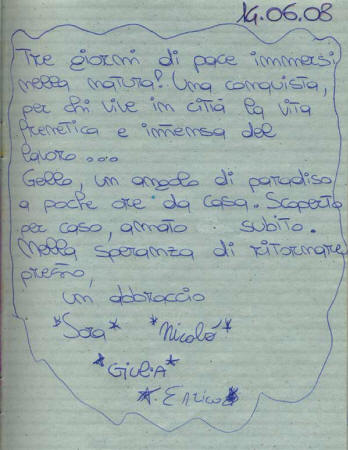 14.06.08
Tre giorni di pace immersi
nella natura! Una conquista,
per chi vive in città la vita
frenetica e intensa del
lavoro...
Gello, un angolo di paradiso
a poche ore da casa. Scoperto
per caso, amato subito.
Nella speranza di ritornare
presto,
un abbraccio
*Sara* *Nicolò*
*GIULIA*
*Enrico*